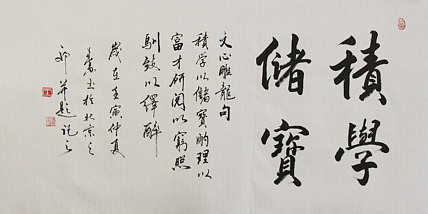 積學
儲寶
文心雕龍句
積學以儲寶酌理以
富才研閱以窮照
馴致以繹辭
歲在壬寅仲夏
書於北京之
並題記之